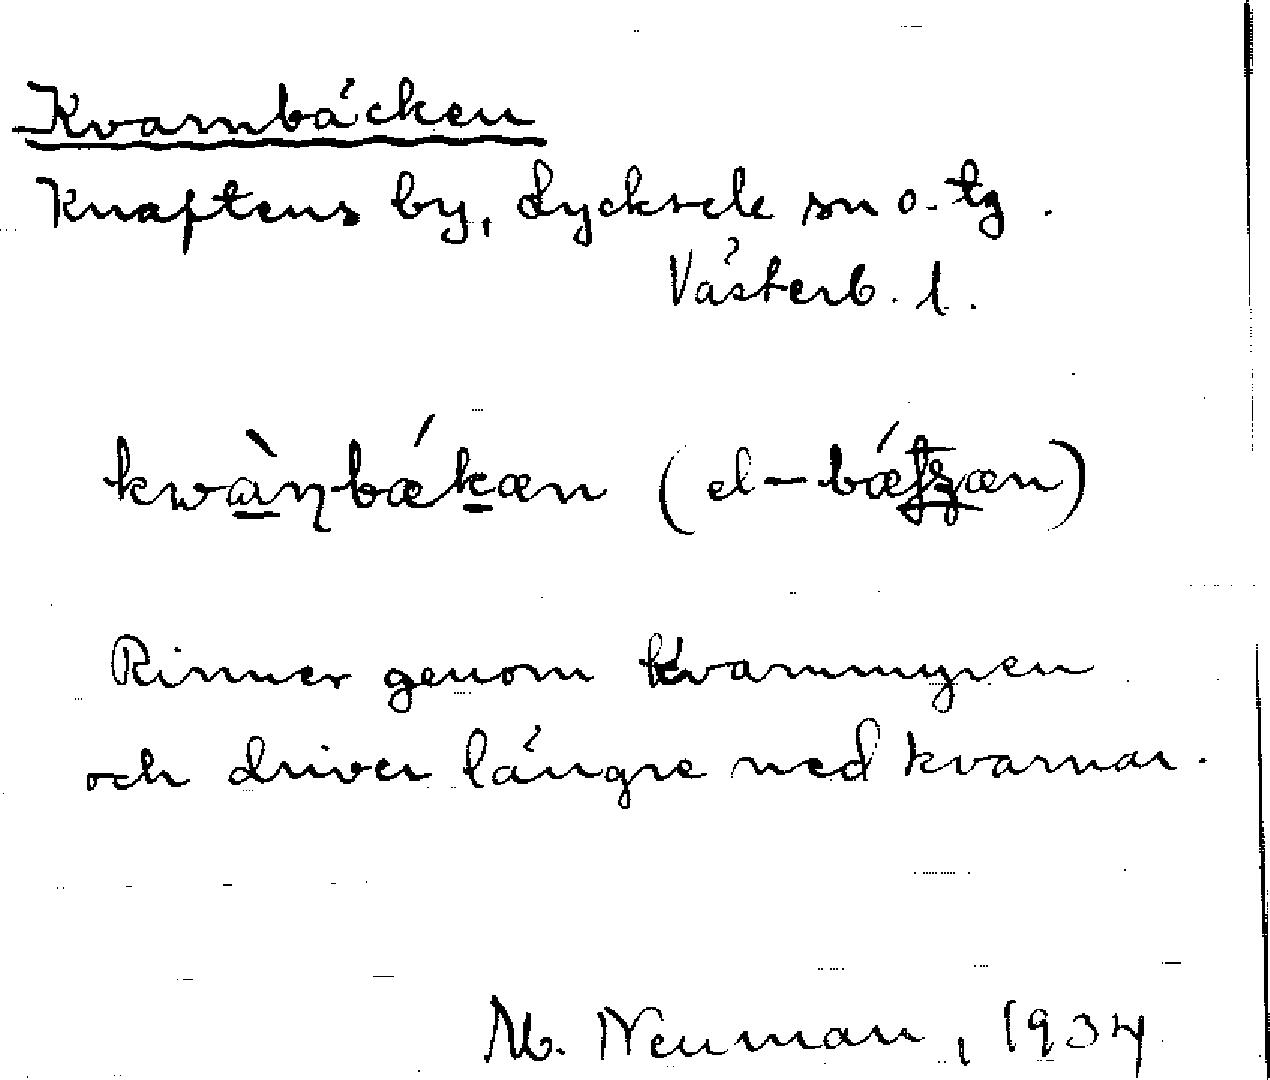 Kvarnbäcken
Knaftens by, Lycksele sn o. tg.
Västerb. l.
kwànbǽkæn (el -bǽ
Rinner genom Kvarnmyren
och driver längre ned kvarnar.
M. Neuman, 1934